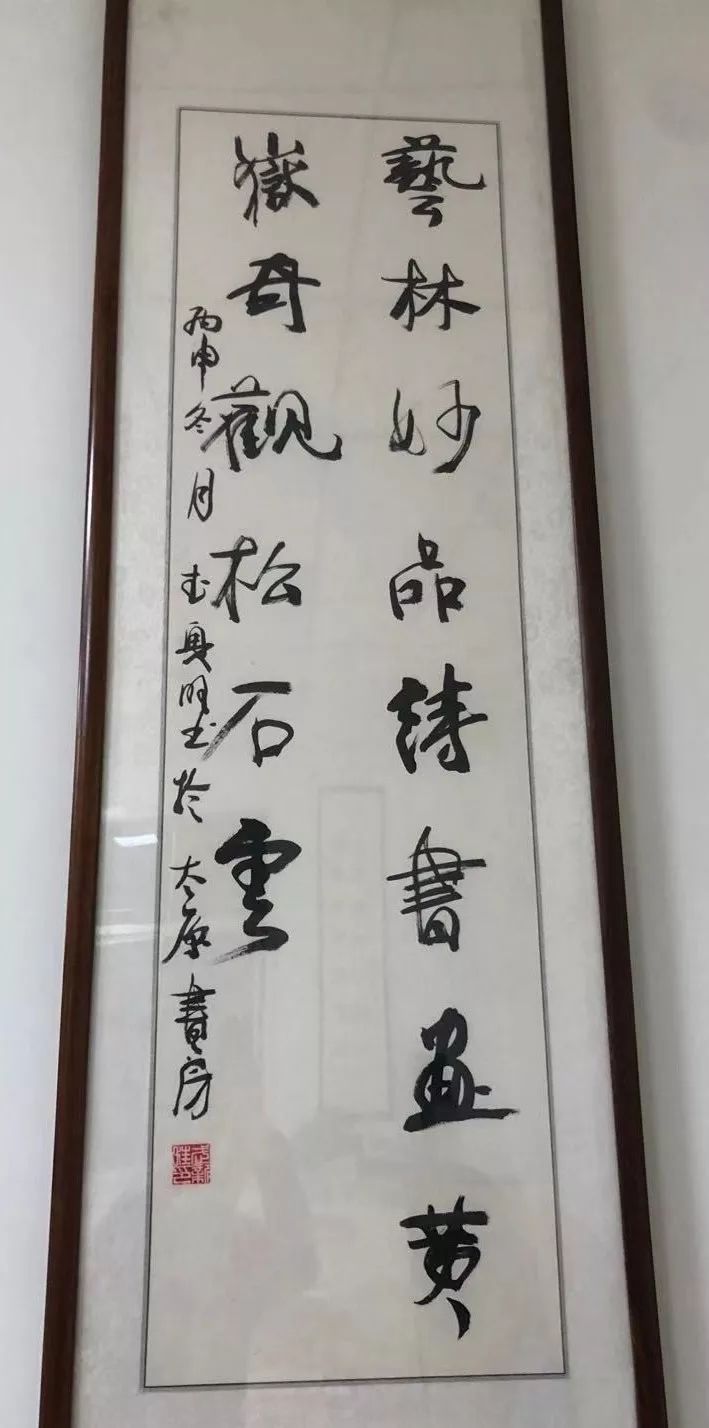 藝林妙品詩書畫黄
嶽奇觀松石雲
丙申冬月 武 书於太原書房